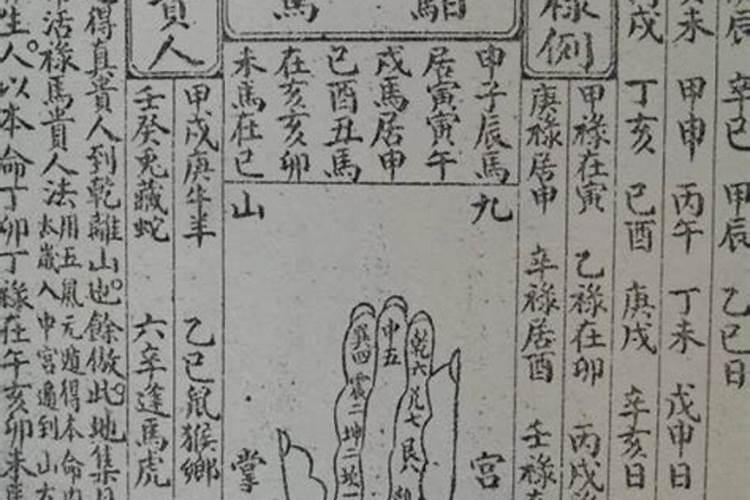 辰 辛巳 甲辰 乙巳日
癸未 甲申 丙午 丁未 戊申日
戌 丁亥 己酉 庚戌 辛亥日
祿例
甲祿在寅 乙祿在卯 丙戌
庚祿居申 辛祿居酉 壬祿在
馬
申子辰馬
居寅寅午
戌馬居申
巳酉丑馬
在亥亥卯
未馬在巳
九
山
宮
掌
乾六 兌七 艮
中五
巽四 震三 坤二 坎一
貴人
甲戊庚牛羊 乙己鼠猴鄉
壬癸兔藏蛇 六辛逢馬虎
得真貴人到乾離山也。餘倣此。地集
活祿馬貴人法用五鼠元遁得本命
太歲入中宮遁到山
生人。以本命丁卯丁祿在午亥卯未